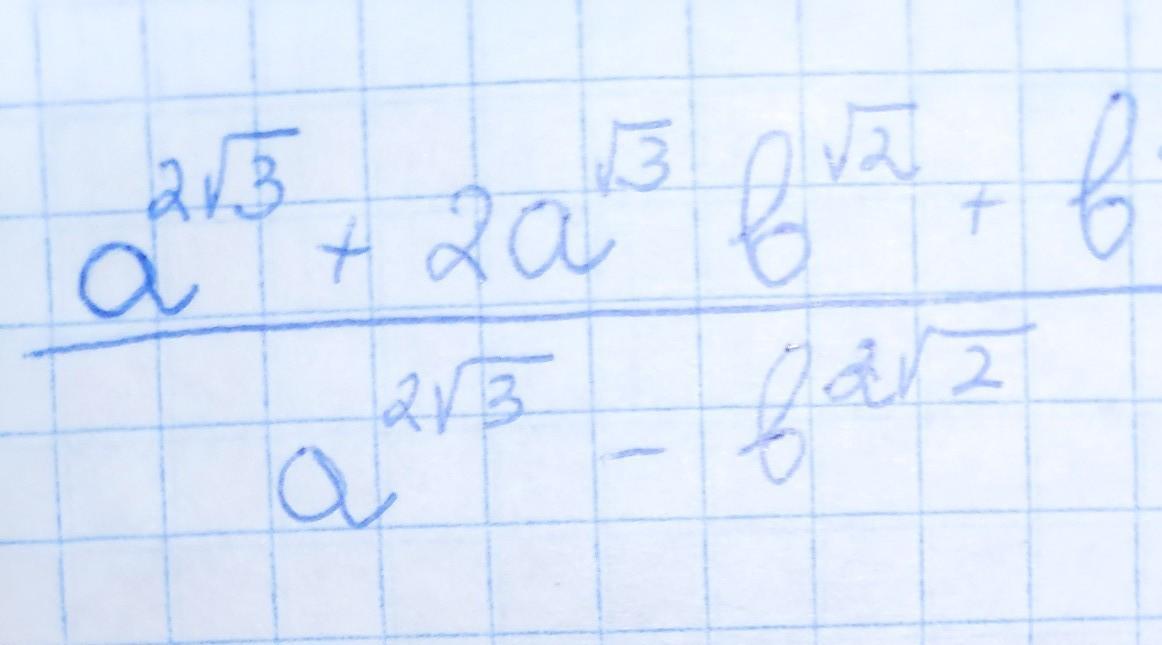 a^{2√3} + 2a^{√3} b^{√2} + b
a^{2√3} - b^{2√2}